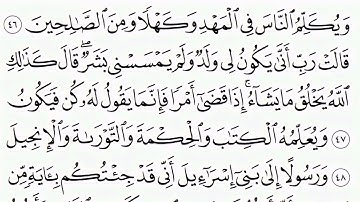 وَيُكَلِّمُ ٱلنَّاسَ فِى ٱلْمَهْدِ وَكَهْلًا وَمِنَ ٱلصَّٰلِحِينَ ٤٦
قَالَتْ رَبِّ أَنَّىٰ يَكُونُ لِى وَلَدٌ وَلَمْ يَمْسَسْنِى بَشَرٌ ۖ قَالَ كَذَٰلِكِ
ٱللَّهُ يَخْلُقُ مَا يَشَآءُ ۚ إِذَا قَضَىٰٓ أَمْرًا فَإِنَّمَا يَقُولُ لَهُۥ كُن فَيَكُونُ
٤٧ وَيُعَلِّمُهُ ٱلْكِتَٰبَ وَٱلْحِكْمَةَ وَٱلتَّوْرَىٰةَ وَٱلْإِنجِيلَ
٤٨ وَرَسُولًا إِلَىٰ بَنِىٓ إِسْرَٰٓءِيلَ أَنِّى قَدْ جِئْتُكُم بِـَٔايَةٍ مِّن